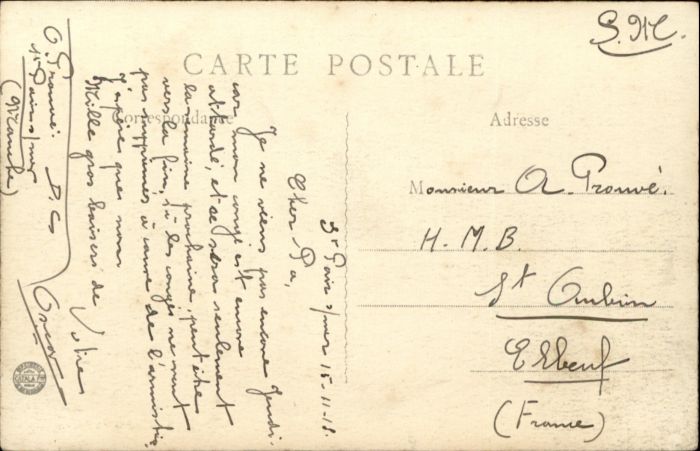 S. M.
CARTE POSTALE
Correspondance
Adresse
St Pair s/mer 15-11-18.
Cher Pa,
Je ne viens pas encore Jeudi.
car mon congé est encore
retardé, et ce sera seulement
la semaine prochaine, peut être
vers la fin, si les congés ne sont
pas supprimés à cause de l'armistice
J'espère que non
Mille gros baisers de Votre
Oscar
O. Prouvé. D.C
St Pair s/mer
(Manche)
Monsieur O. Prouvé.
H. M. B.
St Aubin
Elbeuf
(France)